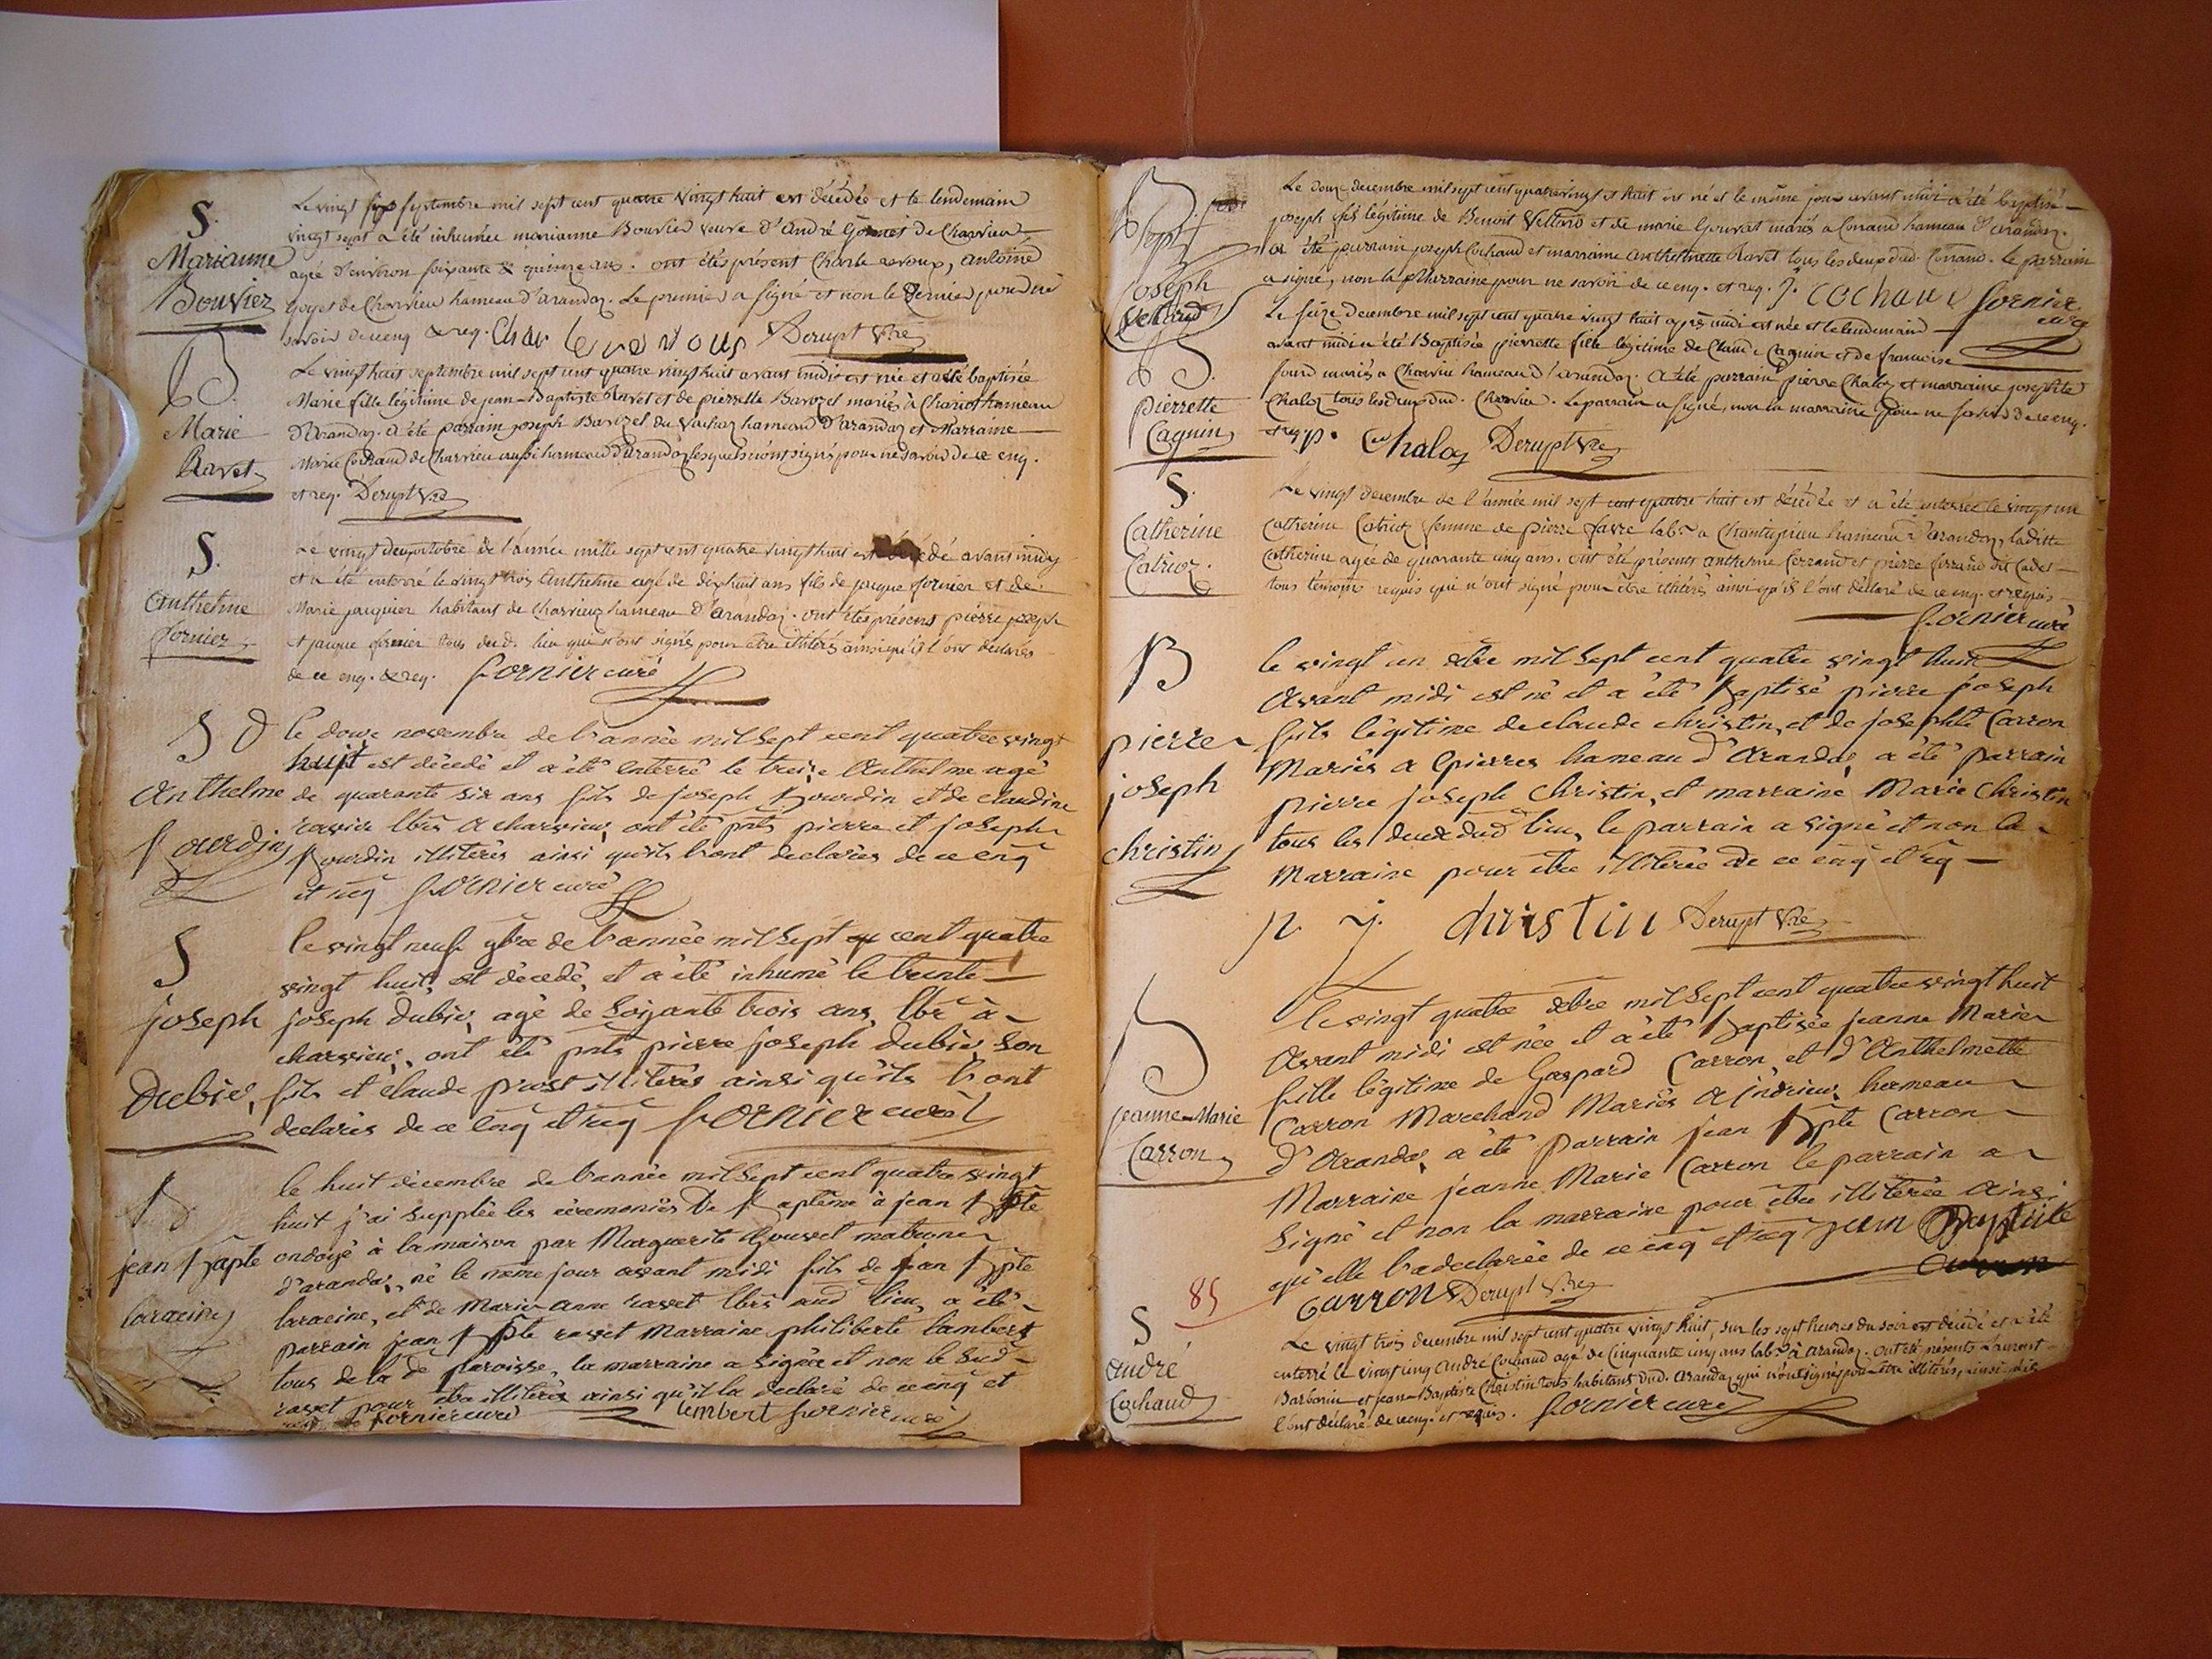 S.
Marianne
Bouvier
Le vingt six septembre mil sept cent quatre vingt huit est décédée et le lendemain
vingt sept a été inhumée marianne Bouvier veuve d'André de Charvieu
agée d'environ soixante & quinze ans. ont étés présent Charle , antoine
Goyet de Charvieu hameau d'arandaz. Le premier a signé et non le dernier pour ne
savoir de ce enq & req. Derupt Vre
B.
Marie
Ravet
Le vingt huit septembre mil sept cent quatre vingt huit avant midi est née et a été baptisée
Marie fille légitime de jean-Baptiste Ravet et de pierrette Barozet mariés à hameau
D'Arandaz. a été parrain joseph Barozet du Vachaz hameau D'arandaz et Marraine
Marie Cochaud de Charvieu aussi hameau D'arandaz lesquels n'ont signés pour ne savoir de ce enq.
et req. Derupt Vre
S.
Anthelme
fornier
Le vingt deux octobre de l'année mille sept cent quatre vingt huit est décédé avant midy
et a été enterré le vingt trois Anthelme agé de dix huit ans fils de jacque fornier et de
Marie jacquier habitant de Charvieuz hameau D'arandaz. ont étés présens pierre joseph
et jacque fornier tous dud. lieu qui n'ont signés pour être illitérés ainsi qu'ils l'ont déclarés
de ce enq. & req. fornier curé
S d
Anthelme
Bourdin
le douze novembre de l'année mil sept cent quatre vingt
huit est décedé et a été enterré le treize Anthelme agé
de quarante six ans fils de joseph Bourdin et de claudine
ravier lbrs a charvieux, ont été pnts pierre et joseph
Bourdin illiterés ainsi qu'ils l'ont declarés de ce enq
et req fornier curé
S
joseph
Dubiez
le vingt neuf 9bre de l'année mil sept cent quatre
vingt huit, est décedé, et a été inhumé le trente
joseph dubiez, agé de soixante trois ans, lbr à
charvieux, ont été pnts pierre joseph dubiez son
fils et claude prost illiterés ainsi qu'ils l'ont
declarés de ce enq et req fornier curé
B
jean Bapte
larracine
le huit decembre de l'année mil sept cent quatre vingt
huit j'ai supplée les céremonies de Baptême à jean Bpte
ondoyé à la maison par Marguerite Gouvet matrone
d'arandas, né le même jour avant midi fils de jean Bpte
laraeine, et de Marie-anne ravet lbrs aud lieu, a été
parrain jean Bpte ravet Marraine philiberte lambert
tous de la de paroisse, la marraine a signée et non le sud
ravet pour etre illiterés ainsi qu'il la declaré de ce enq et
fornier curé lambert fornier curé
B.
joseph
Vettard
Le douze decembre mil sept cent quatre vingt et huit est né et le même jour avant midi a été baptisé
joseph fils légitime de Benoit Vettard et de marie Gouvat mariés a Conand hameau d'arandaz.
a été parrain joseph Cochaud et marraine anthelmette Ravet tous les deux dud. Conand. Le parrain
a signé, non la Marraine pour ne savoir de ce enq. et req. J. cochaud fornier
curé
B.
Pierrette
Cagnin
Le seize decembre mil sept cent quatre vingt huit après midi est née et le lendemain
avant midi a été Baptisée pierrette fille légitime de Claude Cagnin et de francoise
mariés a Charvieu hameau d'arandaz. a été parrain pierre Chaley et marraine josephte
Chaley tous les deux dud. Charvieu. Le parrain a signé, non la marraine pour ne savoir de ce enq.
et req. p. Chaley Derupt Vre
S.
Catherine
Catrioz
Le vingt decembre de l'année mil sept cent quatre huit est décédée et a été enterrée le vingt un
Catherine Catrioz femme de pierre favre labr a Chantepieu hameau d'arandaz, laditte
Catherine agée de quarante cinq ans. ont été présents anthelme ferrand et pierre ferrand dit Cadet
tous temoins requis qui n'ont signé pour être illitérés ainsi qu'ils l'ont déclaré de ce enq. et requis
fornier curé
B
pierre
joseph
christin
le vingt un xbre mil sept cent quatre vingt huit
Avant midi est né et a été Baptisé pierre joseph
fils légitime de claude christin, et de josephte Carron
Mariés a hameau d'Arandas, a été parrain
pierre joseph Christin, et marraine Marie Christin
tous les deux dud lieu, le parrain a signé et non la
Marraine pour etre illiterée de ce enq et req
p. j. christin Derupt Vre
B
jeanne-Marie
Carron
le vingt quatre xbre mil sept cent quatre vingt huit
Avant midi est née et a été Baptisée jeanne Marie
fille légitime de Gaspard Carron et d'Anthelmette
Carron Marchand Mariés a indrieux hameau
d'Arandas, a été parrain jean Bpte Carron
Marraine jeanne Marie Carron le parrain a
signé et non la marraine pour être illiterée ainsi
qu'elle l'a declarée de ce enq et req jean Baptiste
carron Derupt Vre
85
S
andré
Cochaud
Le vingt trois decembre mil sept cent quatre vingt huit, sur les sept heures du soir est décédé et a été
enterré le vingt cinq andré Cochaud agé de Cinquante cinq ans labr à arandaz. ont été présents Laurent
Barbarin et jean-Baptiste Christin tous habitans dud. arandaz qui n'ont signés pour être illitérés, ainsi
l'ont déclaré de ce enq. et requis. fornier curé